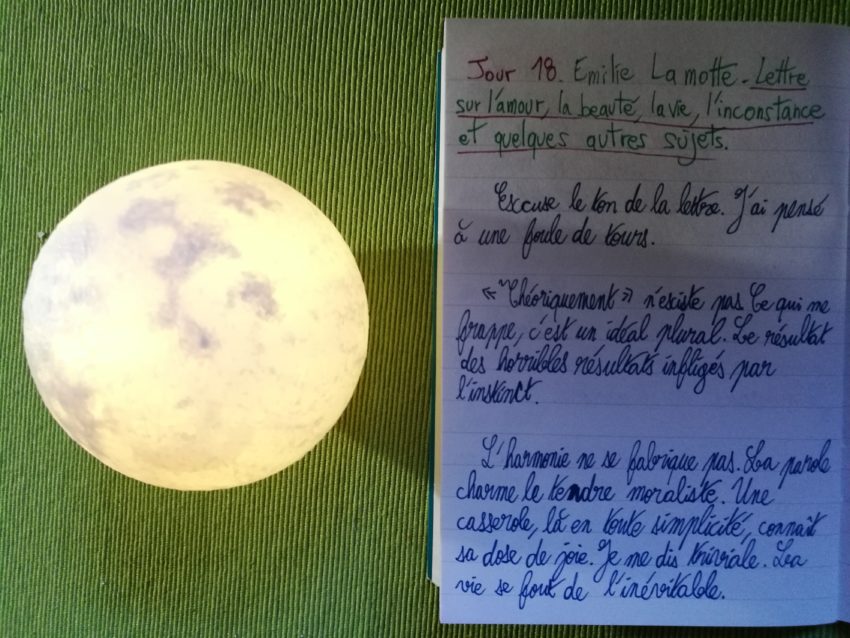 Jour 18. Emilie Lamotte - Lettre
sur l'amour, la beauté, la vie, l'inconstance
et quelques autres sujets.
Excuse le ton de la lettre. J'ai pensé
à une foule de tours.
« Théoriquement » n'existe pas. Ce qui me
frappe, c'est un idéal plural. Le résultat
des horribles résultats infligés par
l'instinct.
L'harmonie ne se fabrique pas. La parole
charme le tendre moraliste. Une
casserole, là en toute simplicité, connaît
sa dose de joie. Je me dis triviale. La
vie se fout de l'inévitable.